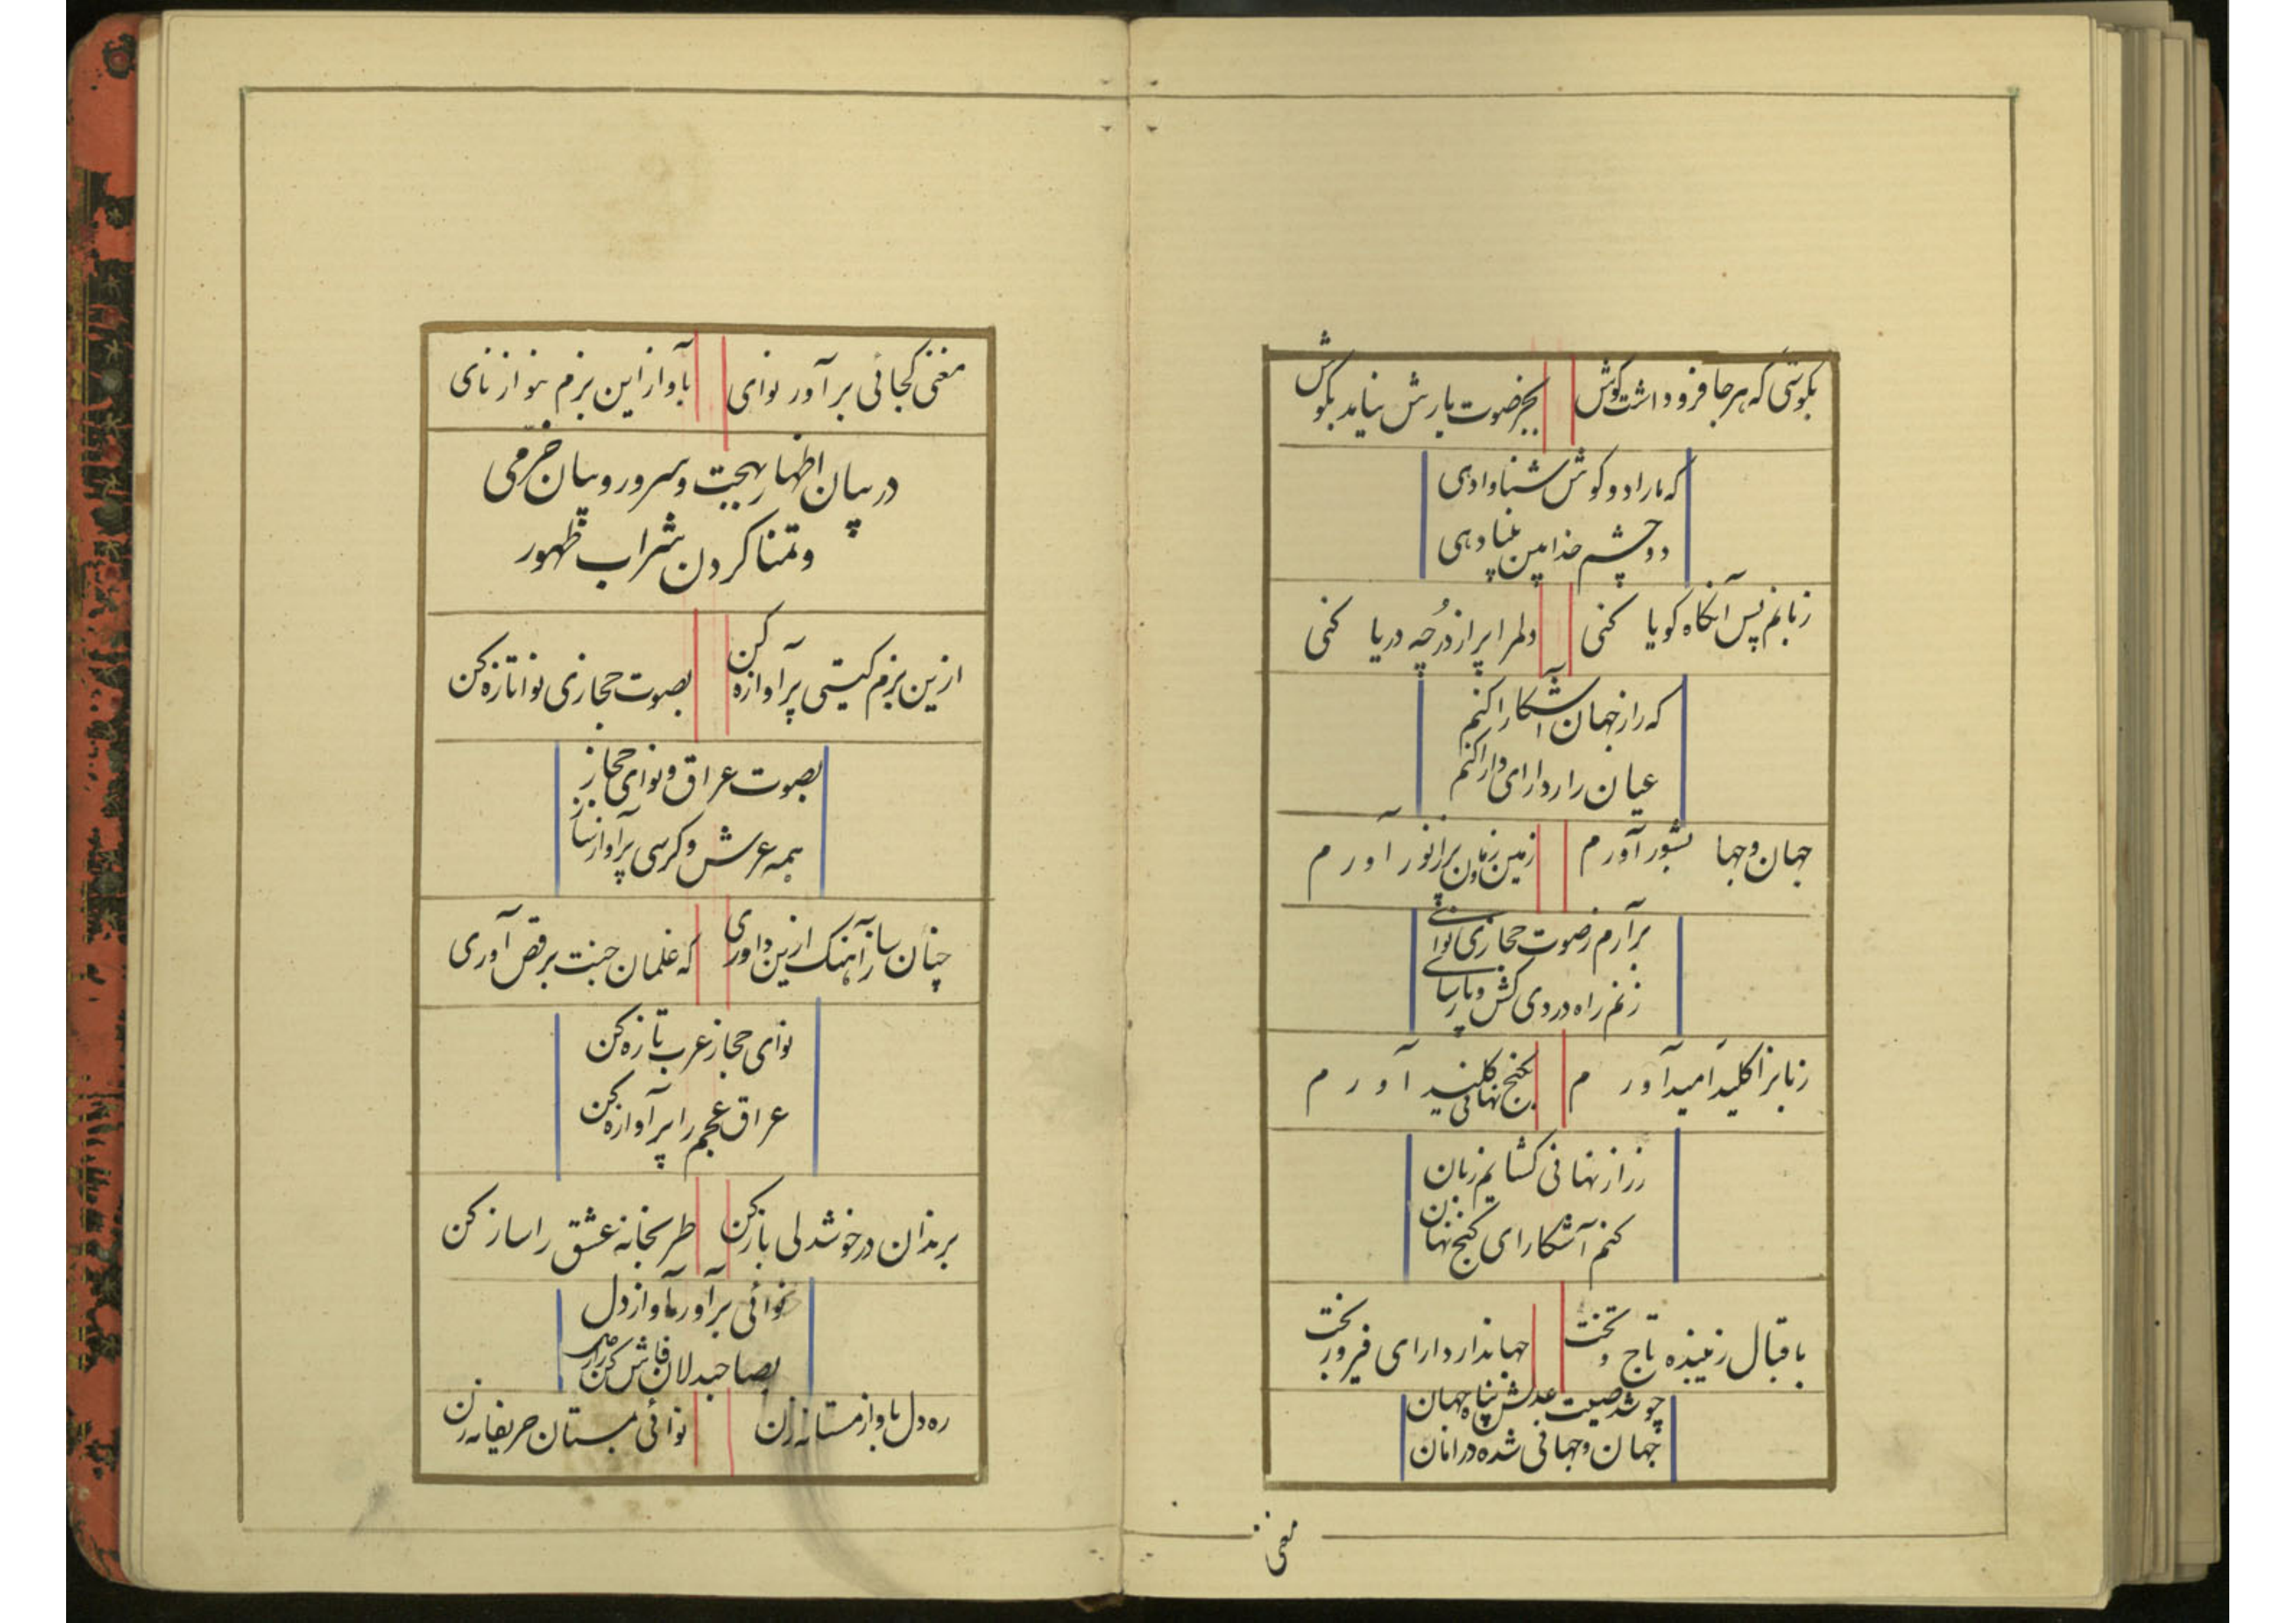 بکوشی که هر جا فرو داشت گوش بجز صوت یارش نیامد بگوش
که ما را دو گوش شنوا دهی
دو چشم خدابین بینا دهی
زبانم پس آنگاه گویا کنی دلم را پر از در چه دریا کنی
که راز جهان آشکارا کنم
عیان را دارای دارا کنم
جهان و جها بشور آورم زمین زمان پر از نور آورم
برآرم ز صوت حجازی نوائی
زنم راه دردی کش و پارسائی
زبانرا کلید امید آورم بگنج نهانی کلید آورم
ز راز نهانی گشایم زبان
کنم آشکارای گنج نهان
باقبال زیبنده تاج و تخت جهاندار دارای فیروز بخت
چو شد صیت عدلش پناه جهان
جهان و جهانی شده در امان
مغنی
مغنی کجائی برآور نوای بآواز این بزم بنواز نای
در بیان اظهار بهجت و سرور و بیان خرمی
و تمنا کردن شراب ظهور
ازین بزم گیتی پر آوازه کن بصوت حجازی نوا تازه کن
بصوت عراق و نوای حجاز
همه عرش و کرسی پر آواز ساز
چنان ساز آهنگ ازین داوری که غلمان جنت برقص آوری
نوای حجاز عرب تازه کن
عراق عجم را پر آوازه کن
برندان در خوشدلی باز کن طربخانه عشق را ساز کن
نوائی برآور بآواز دل
بصاحبدلان فاش کن راز دل
ره دل بآواز مستانه زن نوائی بمستان حریفانه زن